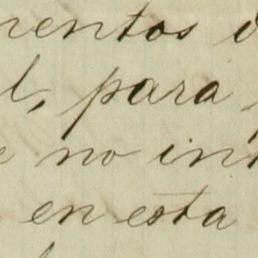 mentos
l, para
e no in
en esta